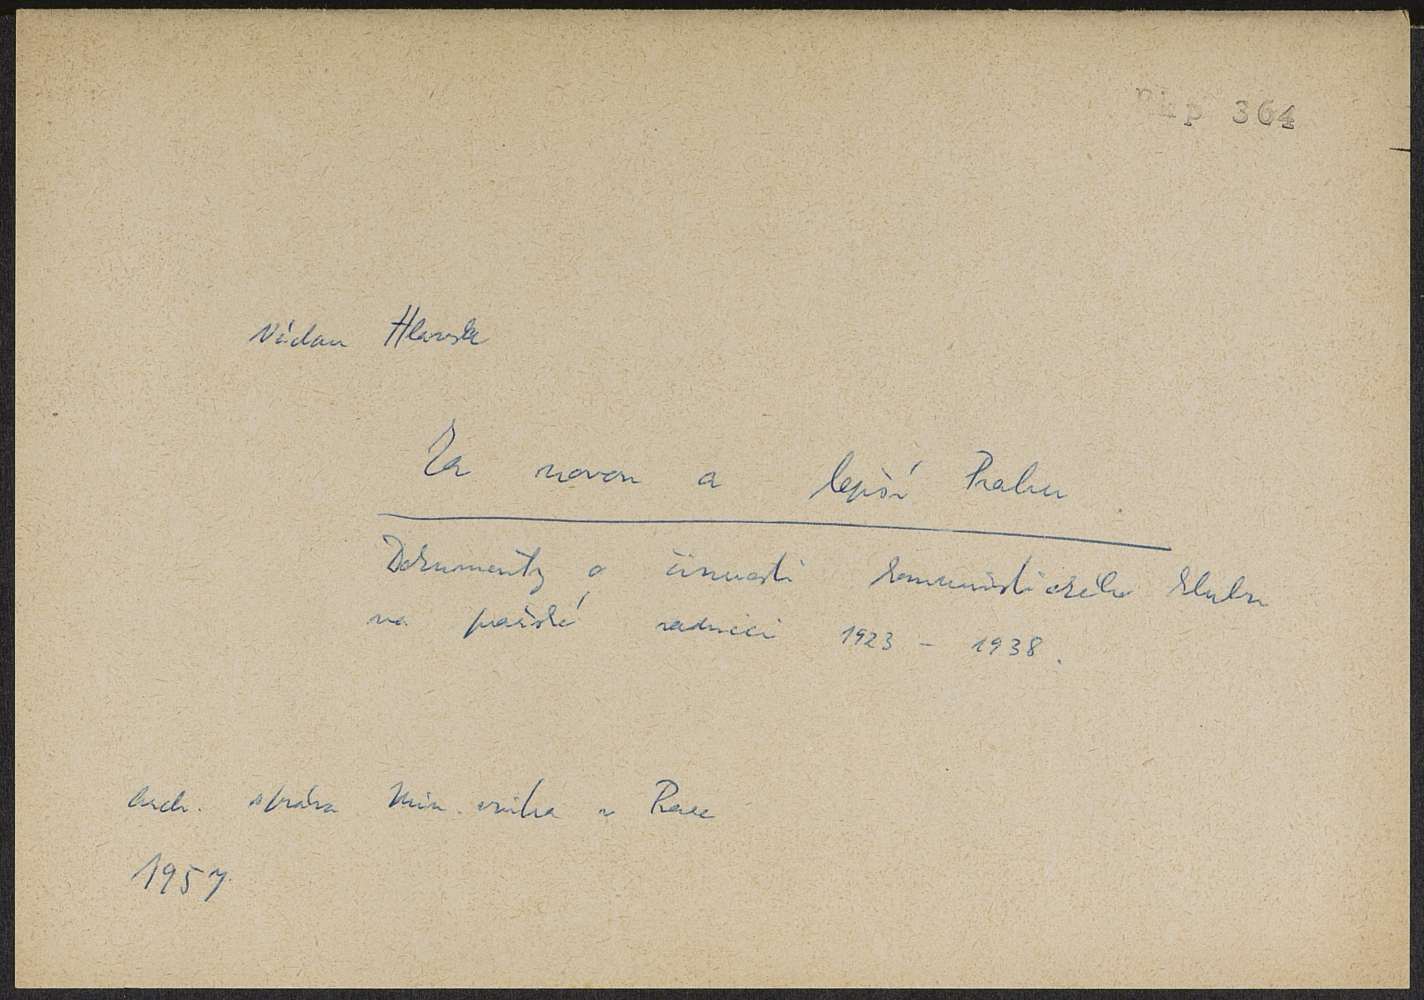 nip 364
Václav Hlavsa
Za novou a lepší Prahu
Dokumenty o činnosti komunistického klubu
na pražské radnici 1923 – 1938.
Arch. správa Min. vnitra v Praze
1957.